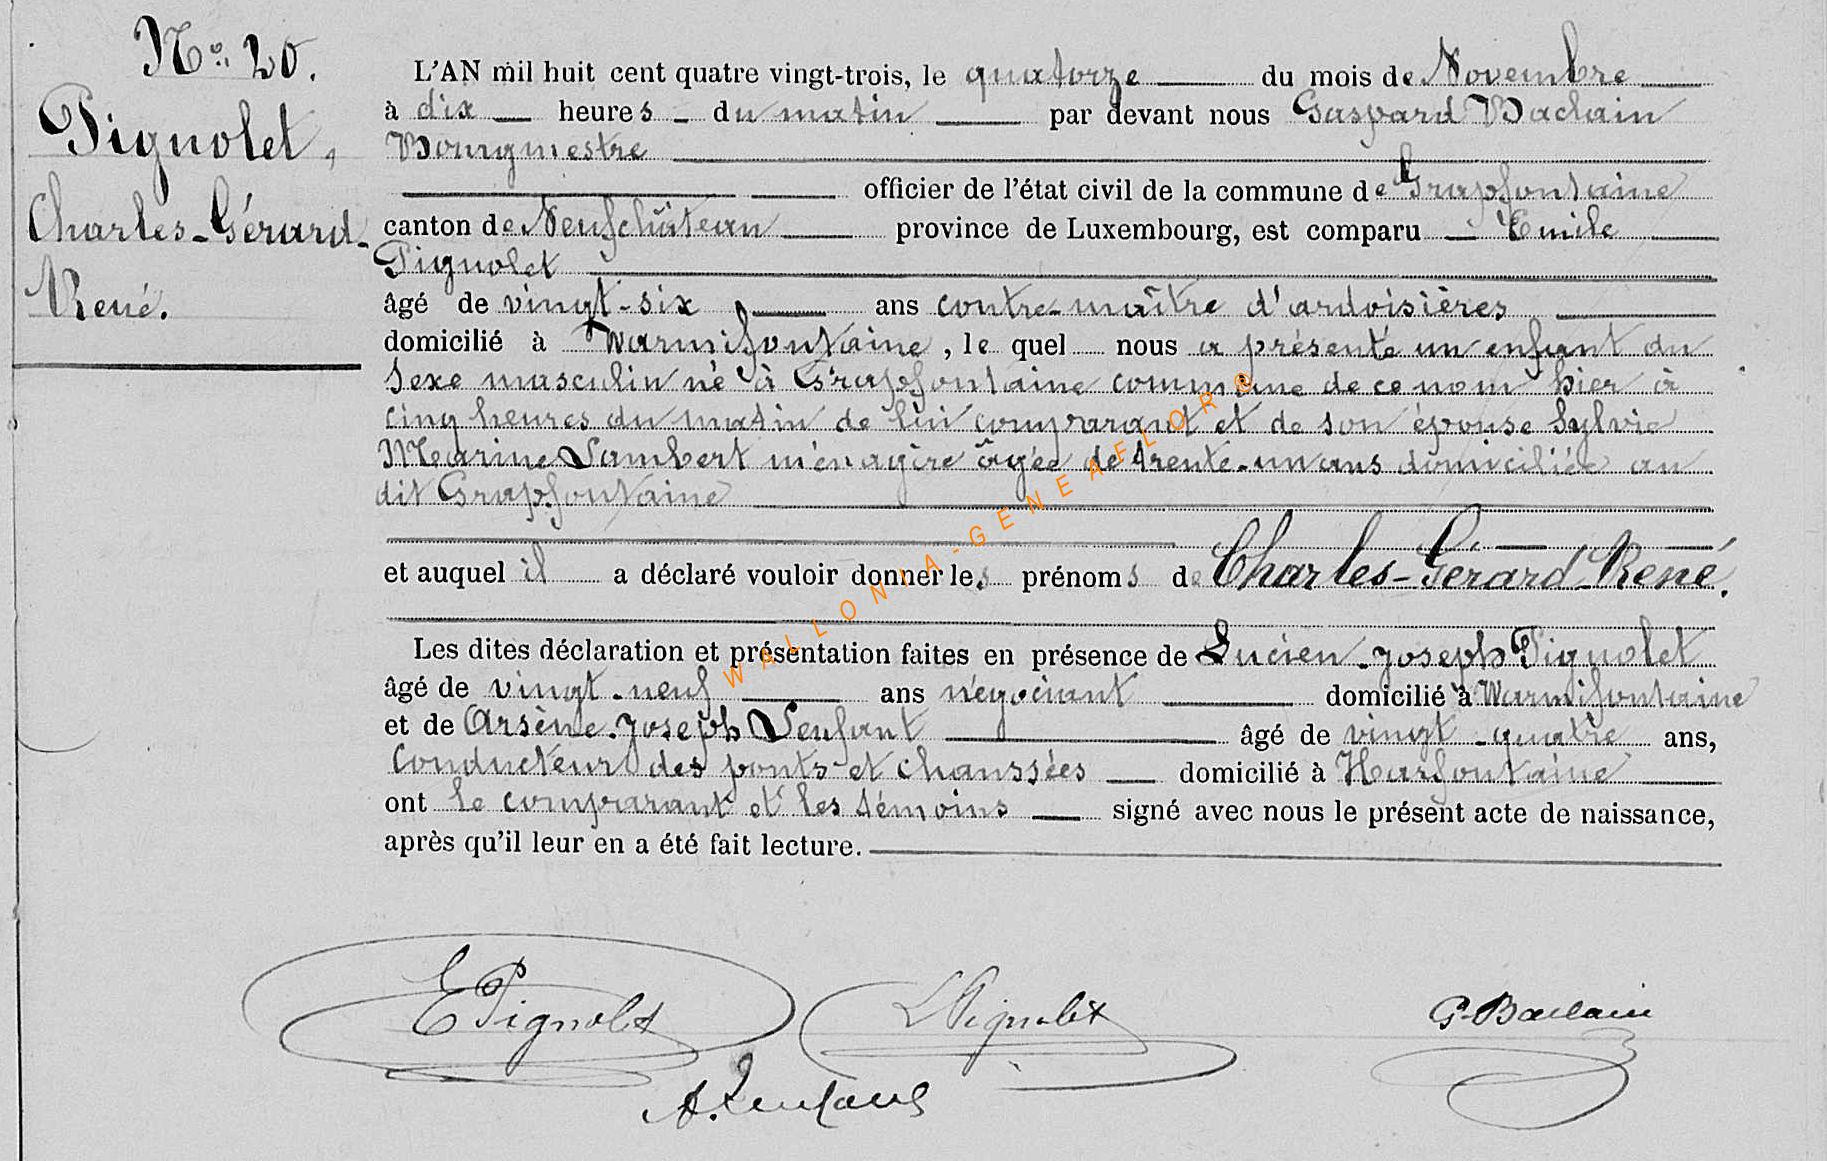 No. 20.
Pignolet,
Charles-Gérard-
René.
L'AN mil huit cent quatre vingt-trois, le quatorze du mois de Novembre
à dix heures du matin par devant nous Gaspard Baclain
Bourgmestre
officier de l'état civil de la commune de Grapfontaine
canton de Neufchâteau province de Luxembourg, est comparu Emile
Pignolet
âgé de vingt-six ans contre-maître d'ardoisières
domicilié à Warmifontaine, le quel nous a présenté un enfant du
sexe masculin né à Grapfontaine commune de ce nom hier à
cinq heures du matin de lui comparant et de son épouse Sylvie
Marine Lambert ménagère âgée de trente-un ans domiciliée au
dit Grapfontaine
et auquel il a déclaré vouloir donner les prénoms de Charles-Gérard-René.
Les dites déclaration et présentation faites en présence de Lucien-Joseph Pignolet
âgé de vingt-neuf ans négociant domicilié à Warmifontaine
et de Arsène-Joseph Lenfant âgé de vingt-quatre ans,
Conducteur des ponts et chaussées domicilié à Harfontaine
ont le comparant et les témoins signé avec nous le présent acte de naissance,
après qu'il leur en a été fait lecture.
WALLONIA-GENEAFLOR ®
E Pignolet
L Pignolet
G. Baclain
A. Lenfant